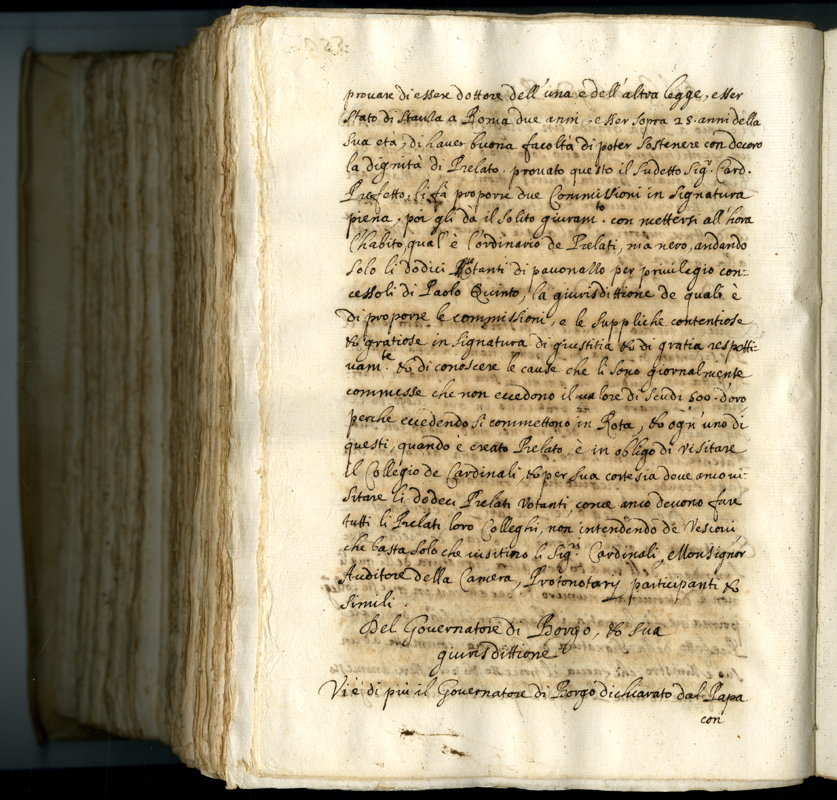 provare di essere dottore dell'una e dell'altra legge, esser
stato di stanza a Roma due anni, esser sopra 25. anni della
sua età, di haver buona facoltà di poter sostenere con decoro
la dignità di Prelato. provato questo il sudetto Sigr. Card.
Prefetto, li fà proporre due Commissioni in Signatura
piena. poi gli dà il solito giuramto. con mettersi all'hora
l'habito, qual'è l'ordinario de Prelati, mà nero, andando
solo li dodici Votanti di pavonazzo per privilegio con=
cessoli di Paolo Quinto, la giurisdittione de quali è
di proporre le commissioni, e le suppliche contentiose,
& gratiose in signatura di giustitia & di gratia respetti=
vamte. & di conoscere le cause che li sono giornalmente
commesse che non eccedono il valore di scudi 500. d'oro
perche eccedendo si commettono in Rota, & ogn'uno di
questi, quando è creato Prelato, è in obligo di visitare
il Collegio de Cardinali, & per sua cortesia deve anco vi=
sitare li dodeci Prelati Votanti, come anco devono fare
tutti li Prelati loro Colleghi, non intendendo de Vescovi,
che basta solo che visitino li Sigri. Cardinali, e Monsignor
Auditore della Camera, Protonotarij participanti &
simili.
Del Governatore di Borgo, & sua
giurisdittione
Vi è di più il Governatore di Borgo dichiarato dal Papa
con